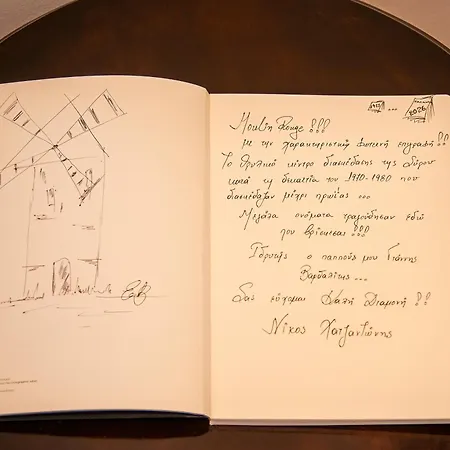 1913 ... 2026
Moulin Rouge !!!
με την χαρακτηριστική φωτεινή επιγραφή !!
Το θρυλικό κέντρο διασκέδασης της Σύρου
κατά τη δεκαετία του 1970-1980 που
διασκέδαζαν μέχρι πρωίας ...
Μεγάλα ονόματα τραγούδησαν εδώ
που βρίσκεσαι !!!
Ιδρυτής ο παππούς μου Γιάννης
...
Σας εύχομαι Καλή Διαμονή !!
Νίκος Χατζαντώνης